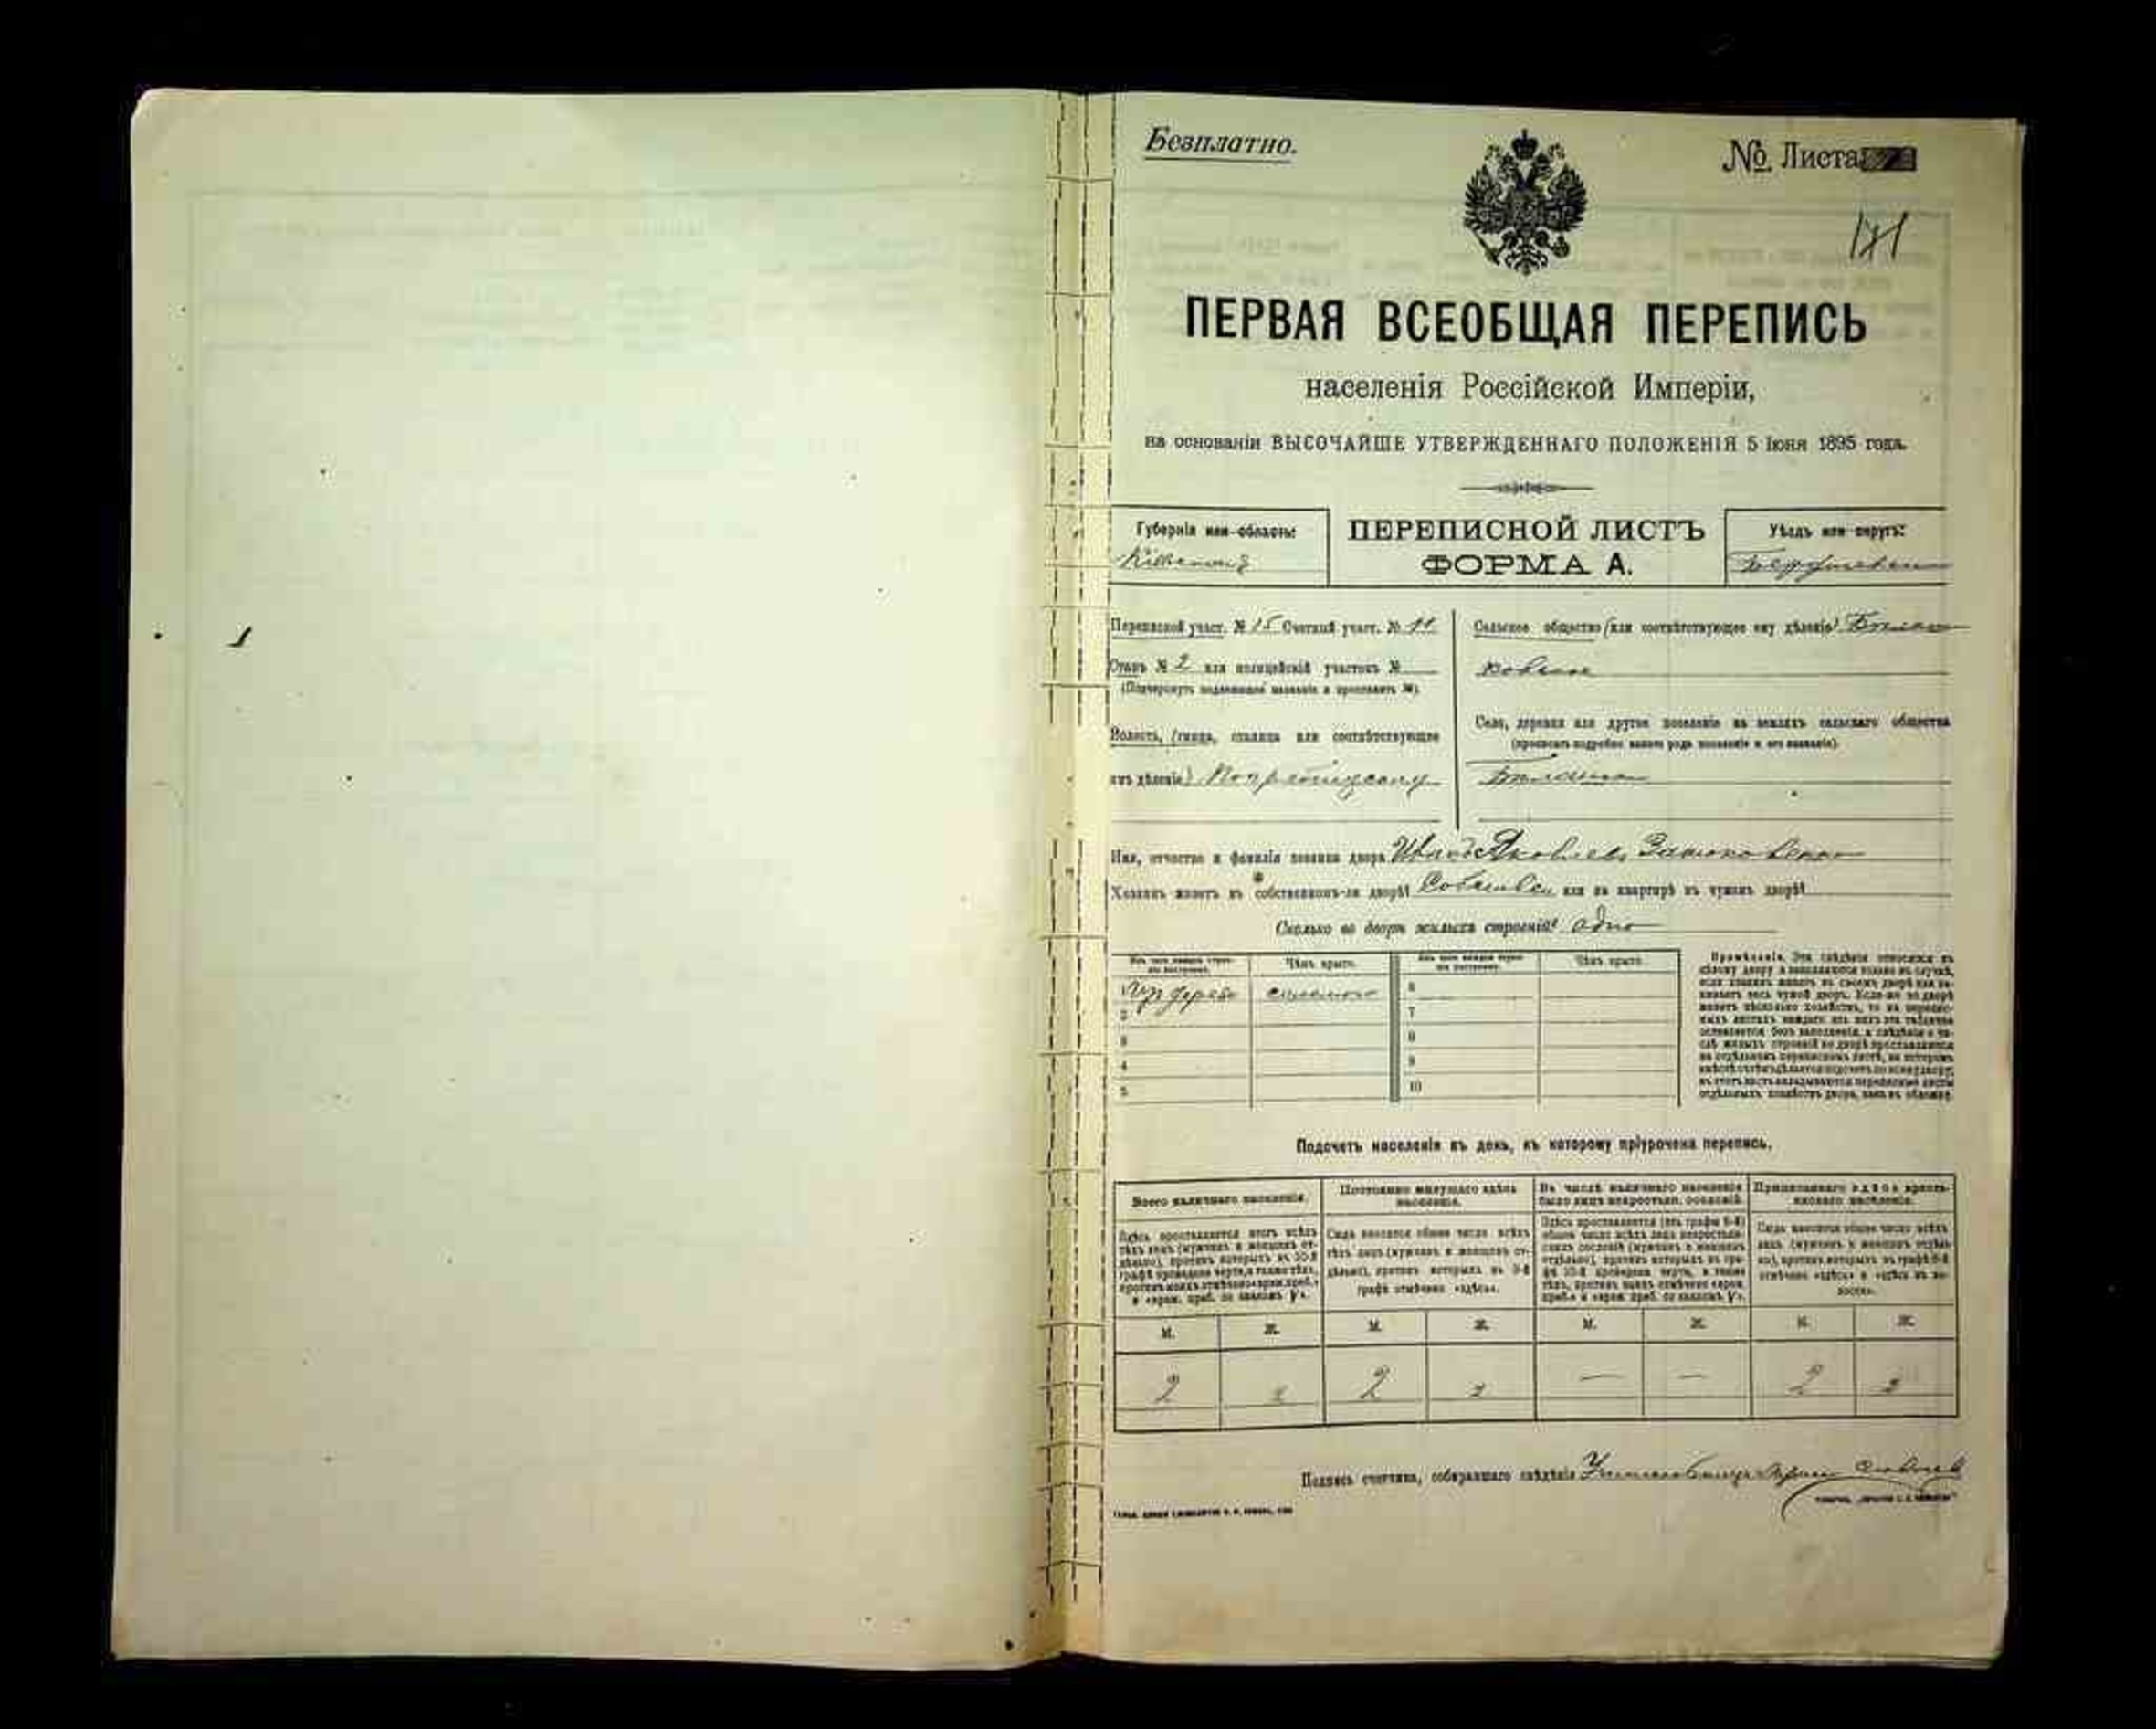 Безплатно.
№ Листа
171
ПЕРВАЯ ВСЕОБЩАЯ ПЕРЕПИСЬ
населенія Россійской Имперіи,
на основаніи ВЫСОЧАЙШЕ УТВЕРЖДЕННАГО ПОЛОЖЕНІЯ 5 Іюня 1895 года.
Губернія или область:
Кіевская
ПЕРЕПИСНОЙ ЛИСТЪ
ФОРМА А.
Уѣздъ или округъ:
Переписной участ. № 15 Счетный участ. № 11
Станъ № 2 или полицейскій участокъ №
(Подчеркнуть подлежащее названіе и проставить №).
Волость, (гмина, станица или соотвѣтствующее
имъ дѣленіе)
Сельское общество (или соотвѣтствующее ему дѣленіе)
Село, деревня или другое поселеніе на земляхъ сельскаго общества
(прописать подробно какого рода поселеніе и его названіе).
Имя, отчество и фамилія хозяина двора Иванъ Яковлевъ
Хозяинъ живетъ въ собственномъ-ли дворѣ? или на квартирѣ въ чужомъ дворѣ?
Сколько во дворѣ жилыхъ строеній? одно
Изъ чего каждое строеніе построено.
Чѣмъ крыто.
Изъ чего каждое строеніе построено.
Чѣмъ крыто.
дерева соломою 6
2 7
3 8
4 9
5 10
Примѣчаніе. Эти свѣдѣнія относятся къ
цѣлому двору и заполняются только въ случаѣ,
если хозяинъ живетъ въ своемъ дворѣ или на-
нимаетъ весь чужой дворъ. Если-же во дворѣ
живетъ нѣсколько хозяйствъ, то на перепис-
ныхъ листахъ каждаго изъ нихъ эта табличка
оставляется безъ заполненія, а свѣдѣнія о чи-
слѣ жилыхъ строеній во дворѣ проставляются
на отдѣльномъ переписномъ листѣ, на которомъ
вмѣстѣ съ тѣмъ дѣлается подсчетъ по всему двору;
въ этотъ листъ вкладываются переписные листы
отдѣльныхъ хозяйствъ двора, какъ въ обложку.
Подсчетъ населенія въ день, къ которому пріурочена перепись.
Всего наличнаго населенія.
Здѣсь проставляется итогъ всѣхъ
тѣхъ лицъ (мужчинъ и женщинъ от-
дѣльно), противъ которыхъ въ 10-й
графѣ проведена черта, а также тѣхъ,
противъ коихъ отмѣчено «врем. преб.»
и «врем. преб. со знакомъ V».
Постоянно живущаго здѣсь
населенія.
Сюда вносится общее число всѣхъ
тѣхъ лицъ (мужчинъ и женщинъ от-
дѣльно), противъ которыхъ въ 9-й
графѣ отмѣчено «здѣсь».
Въ числѣ наличнаго населенія
было лицъ некрестьян. сословій.
Здѣсь проставляется (изъ графы 4-й)
общее число всѣхъ лицъ некрестьян-
скихъ сословій (мужчинъ и женщинъ
отдѣльно), противъ которыхъ въ гра-
фѣ 10-й проведена черта, а также
тѣхъ, противъ коихъ отмѣчено «врем.
преб.» и «врем. преб. со знакомъ V».
Приписаннаго здѣсь кресть-
янскаго населенія.
Сюда вносится общее число всѣхъ
лицъ (мужчинъ и женщинъ отдѣль-
но), противъ которыхъ въ графѣ 8-й
отмѣчено «здѣсь» и «здѣсь въ во-
лости».
М. Ж. М. Ж. М. Ж. М. Ж.
2 2 2 2 — — 2 2
Подпись счетчика, собиравшаго свѣдѣнія